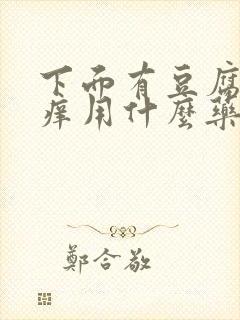 下而有豆腐
痒用什麼藥
鄭合敬